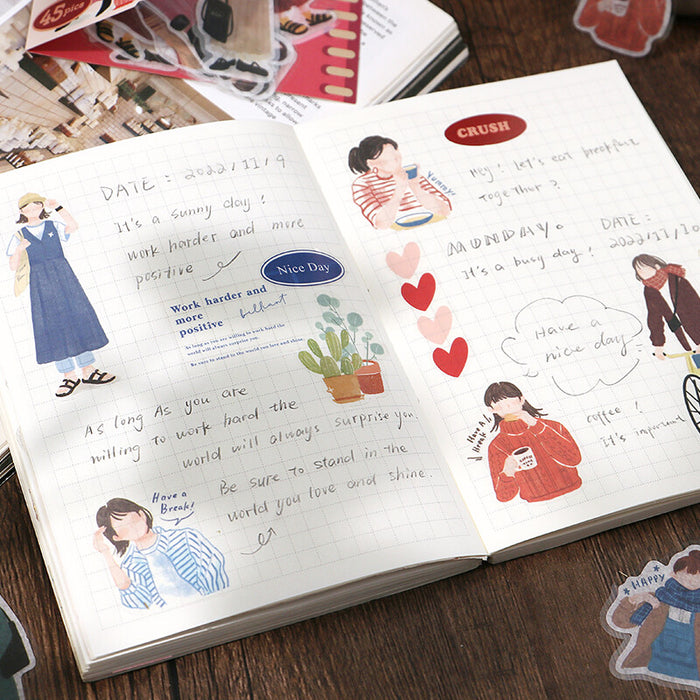 45pics
DATE : 2022/11/9
It's a sunny day!
work harder and more
positive
Nice Day
Work harder and
more
positive
As long as you are willing to work hard the
world will always surprise you.
Be sure to stand in the world you love and shine
As long As you are
willing to work hard the
world will always surprise you.
Be sure to stand in the
world you love and shine.
Have a
Break!
CRUSH
Hey! let's eat breakfast
together?
Yummy!
MONDAY.
DATE:
It's a busy day!
2022/11/10
Have a
nice day
Have A
Break
coffee!
It's important
HAPPY